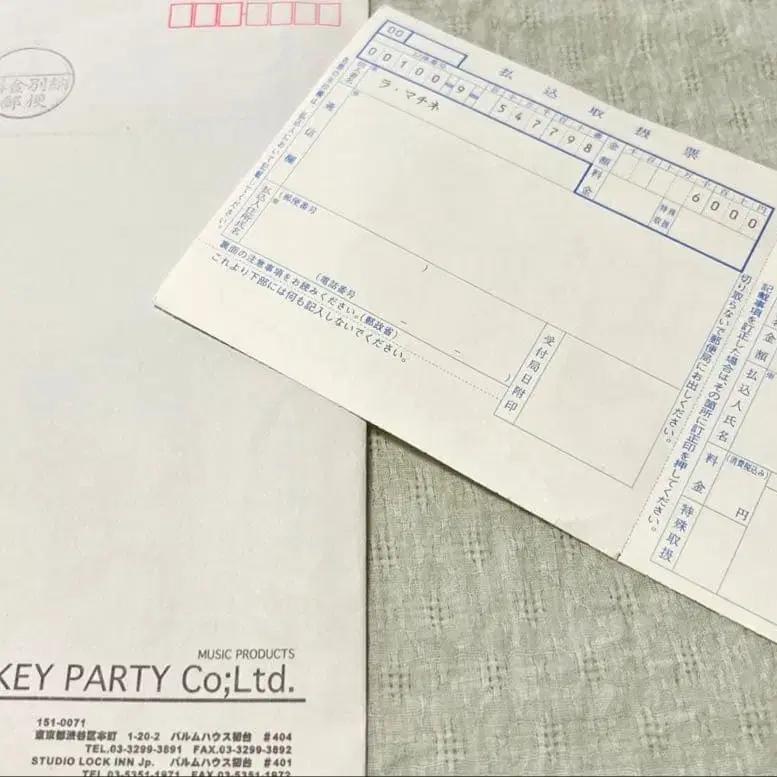 料金別納
郵便
MUSIC PRODUCTS
KEY PARTY Co;Ltd.
151-0071
東京都渋谷区本町 1-20-2 パルムハウス初台 #404
TEL.03-3299-3891 FAX.03-3299-3892
STUDIO LOCK INN Jp. パルムハウス初台 #401
TEL.03-5351-1871 FAX.03-5351-1872
払込取扱票
00
口座番号
百 十 万 千 百 十 番
00100-9-547798
金額
千 百 十 万 千 百 十 円
6000
加入者名
ラ・マチネ
料金
特殊取扱
通信欄
払込人住所氏名
(郵便番号
)
(電話番号
- - )
裏面の注意事項をお読みください。(郵政省)
これより下部には何も記入しないでください。
受付局日附印
切り取らないで郵便局にお出しください。
記載事項を訂正した場合は、その箇所に訂正印を押してください。
金額
払込人氏名
料金
(消費税込み)
円
特殊取扱